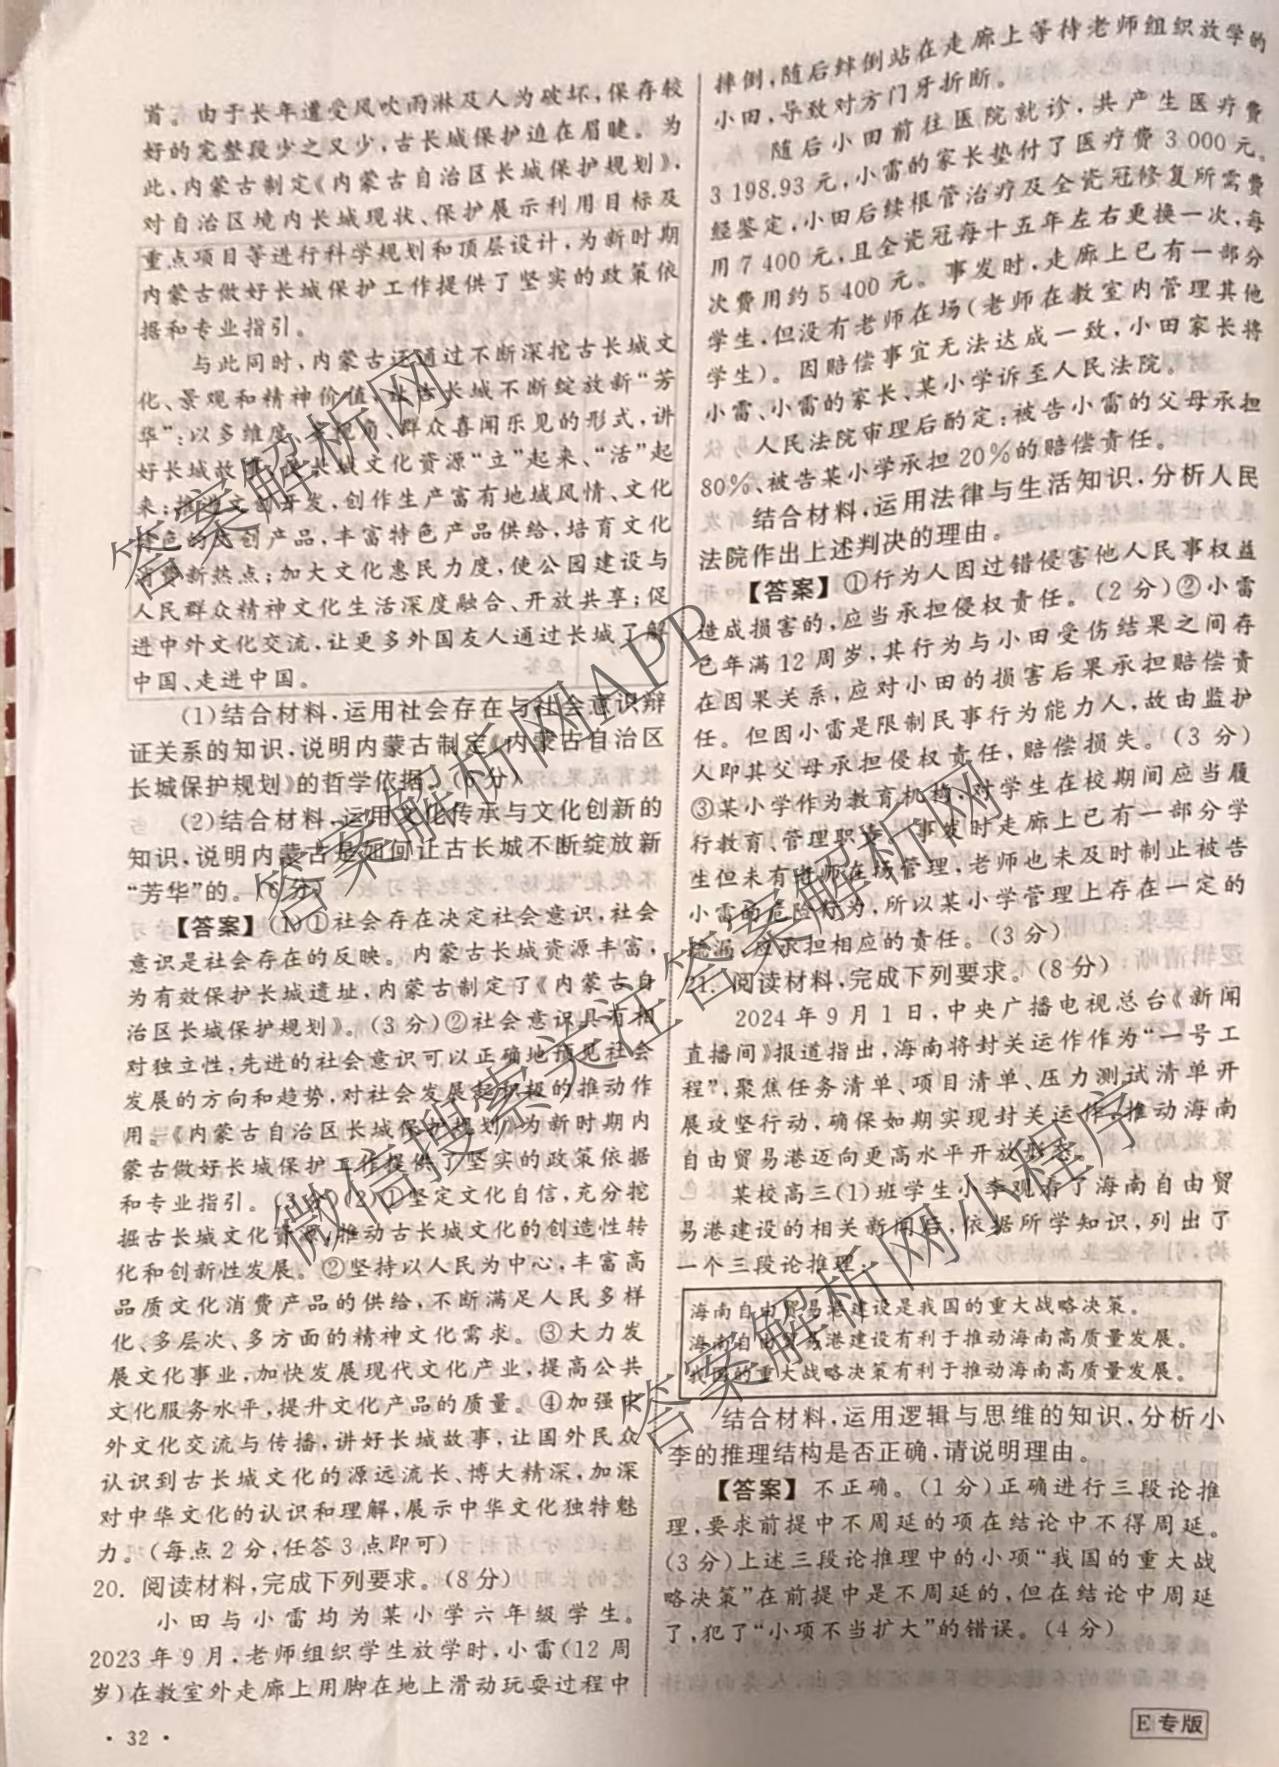 首。由于长年遭受风吹雨淋及人为破坏,保存较
好的完整段少之又少,古长城保护迫在眉睫。为
此,内蒙古制定《内蒙古自治区长城保护规划》,
对自治区境内长城现状、保护展示利用目标及
重点项目等进行科学规划和顶层设计,为新时期
内蒙古做好长城保护工作提供了坚实的政策依
据和专业指引。
与此同时,内蒙古还通过不断深挖古长城文
化、景观和精神价值,让古长城不断绽放新“芳
华”:以多维度、视角、群众喜闻乐见的形式,讲
好长城故事,让长城文化资源“立”起来、“活”起
来;推进文创开发,创作生产富有地域风情、文化
特色的文创产品,丰富特色产品供给,培育文化
消费新热点;加大文化惠民力度,使公园建设与
人民群众精神文化生活深度融合、开放共享;促
进中外文化交流,让更多外国友人通过长城了解
中国、走进中国。
(1)结合材料,运用社会存在与社会意识辩
证关系的知识,说明内蒙古制定《内蒙古自治区
长城保护规划》的哲学依据。(6分)
(2)结合材料,运用文化传承与文化创新的
知识,说明内蒙古是如何让古长城不断绽放新
“芳华”的。(6分)
【答案】(1)①社会存在决定社会意识,社会
意识是社会存在的反映。内蒙古长城资源丰富,
为有效保护长城遗址,内蒙古制定了《内蒙古自
治区长城保护规划》。(3分)②社会意识具有相
对独立性,先进的社会意识可以正确地预见社会
发展的方向和趋势,对社会发展起积极的推动作
用。《内蒙古自治区长城保护规划》为新时期内
蒙古做好长城保护工作提供了坚实的政策依据
和专业指引。(3分)(2)①坚定文化自信,充分挖
掘古长城文化资源,推动古长城文化的创造性转
化和创新性发展。②坚持以人民为中心,丰富高
品质文化消费产品的供给,不断满足人民多样
化、多层次、多方面的精神文化需求。③大力发
展文化事业,加快发展现代文化产业,提高公共
文化服务水平,提升文化产品的质量。④加强中
外文化交流与传播,讲好长城故事,让国外民众
认识到古长城文化的源远流长、博大精深,加深
对中华文化的认识和理解,展示中华文化独特魅
力。(每点2分,任答3点即可)
20. 阅读材料,完成下列要求。(8分)
小田与小雷均为某小学六年级学生。
2023年9月,老师组织学生放学时,小雷(12周
岁)在教室外走廊上用脚在地上滑动玩耍过程中
· 32 ·
摔倒,随后绊倒站在走廊上等待老师组织放学的
小田,导致对方门牙折断。
随后小田前往医院就诊,共产生医疗费
3 198.93元,小雷的家长垫付了医疗费3 000元。
经鉴定,小田后续根管治疗及全瓷冠修复所需费
用7 400元,且全瓷冠每十五年左右更换一次,每
次费用约5 400元。事发时,走廊上已有一部分
学生,但没有老师在场(老师在教室内管理其他
学生)。因赔偿事宜无法达成一致,小田家长将
小雷、小雷的家长、某小学诉至人民法院。
人民法院审理后酌定:被告小雷的父母承担
80%、被告某小学承担20%的赔偿责任。
结合材料,运用法律与生活知识,分析人民
法院作出上述判决的理由。
【答案】①行为人因过错侵害他人民事权益
造成损害的,应当承担侵权责任。(2分)②小雷
已年满12周岁,其行为与小田受伤结果之间存
在因果关系,应对小田的损害后果承担赔偿责
任。但因小雷是限制民事行为能力人,故由监护
人即其父母承担侵权责任,赔偿损失。(3分)
③某小学作为教育机构,对学生在校期间应当履
行教育、管理职责。事发时走廊上已有一部分学
生但未有老师在场管理,老师也未及时制止被告
小雷的危险行为,所以某小学管理上存在一定的
疏漏,应承担相应的责任。(3分)
21. 阅读材料,完成下列要求。(8分)
2024年9月1日,中央广播电视总台《新闻
直播间》报道指出,海南将封关运作作为“一号工
程”,聚焦任务清单、项目清单、压力测试清单开
展攻坚行动,确保如期实现封关运作,推动海南
自由贸易港迈向更高水平开放形态。
某校高三(1)班学生小李观看了海南自由贸
易港建设的相关新闻后,依据所学知识,列出了
一个三段论推理:
海南自由贸易港建设是我国的重大战略决策。
海南自由贸易港建设有利于推动海南高质量发展。
我国的重大战略决策有利于推动海南高质量发展。
结合材料,运用逻辑与思维的知识,分析小
李的推理结构是否正确,请说明理由。
【答案】不正确。(1分)正确进行三段论推
理,要求前提中不周延的项在结论中不得周延。
(3分)上述三段论推理中的小项“我国的重大战
略决策”在前提中是不周延的,但在结论中周延
了,犯了“小项不当扩大”的错误。(4分)
E专版
答案解析网
答案解析网APP
微信搜索关注答案解析网
答案解析网小程序